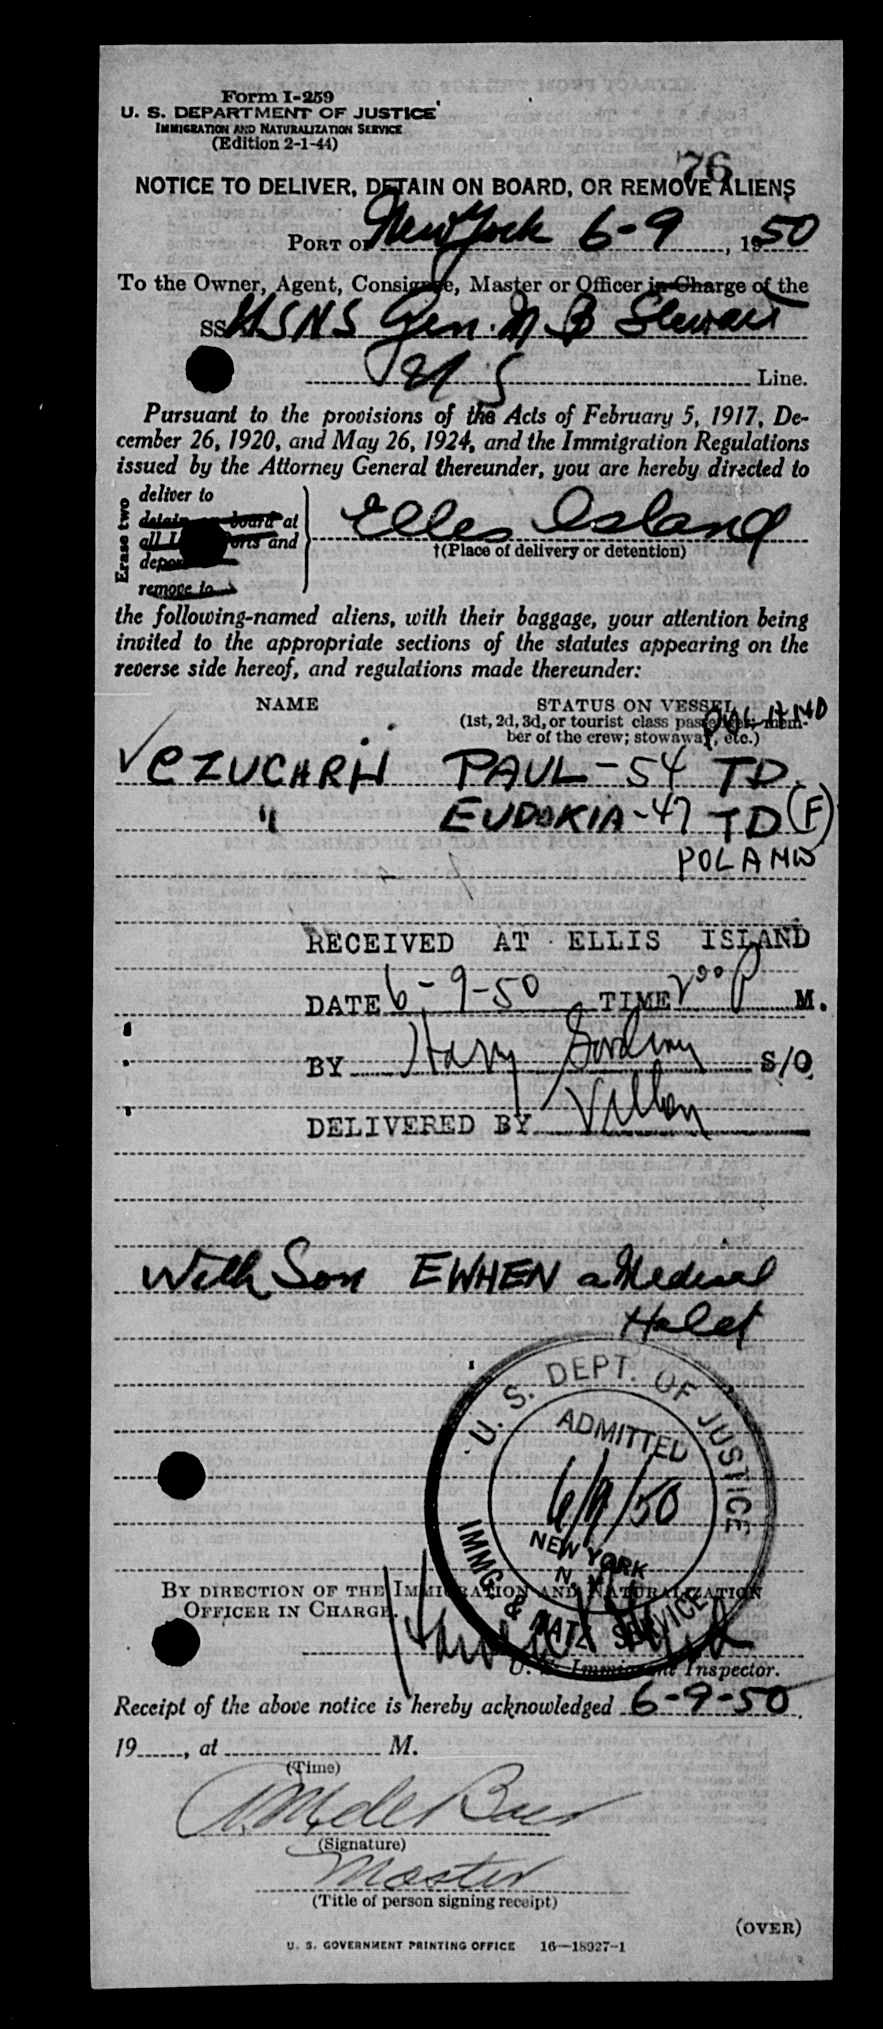 Form I-259
U. S. DEPARTMENT OF JUSTICE
IMMIGRATION AND NATURALIZATION SERVICE
(Edition 2-1-44)
76
NOTICE TO DELIVER, DETAIN ON BOARD, OR REMOVE ALIENS
PORT OF New York 6-9, 1950
To the Owner, Agent, Consignee, Master or Officer in Charge of the
SS USNS Gen. M B Stewart
U S Line.
Pursuant to the provisions of the Acts of February 5, 1917, De-
cember 26, 1920, and May 26, 1924, and the Immigration Regulations
issued by the Attorney General thereunder, you are hereby directed to
Erase two
deliver to
detain on board at
all U. S. ports and
deport
remove to
Elles Island
†(Place of delivery or detention)
the following-named aliens, with their baggage, your attention being
invited to the appropriate sections of the statutes appearing on the
reverse side hereof, and regulations made thereunder:
NAME STATUS ON VESSEL
(1st, 2d, 3d, or tourist class passenger; mem-
ber of the crew; stowaway, etc.)
POLAND
✓ CZUCHRIJ PAUL-54 TD
" EUDOKIA-47 TD (F)
POLAND
RECEIVED AT ELLIS ISLAND
DATE 6-9-50 TIME 2 00 P M.
BY Harry S/O
DELIVERED BY
With Son EWHEN a Medical
Hold
U. S. DEPT. OF JUSTICE
ADMITTED
6/9/50
NEW YORK
N. Y.
IMMG. & NATZ. SERVICE
BY DIRECTION OF THE IMMIGRATION AND NATURALIZATION
OFFICER IN CHARGE.
U. S. Immigrant Inspector.
Receipt of the above notice is hereby acknowledged 6-9-50,
19......, at .................... M.
(Time)
(Signature)
Master
(Title of person signing receipt)
(OVER)
U. S. GOVERNMENT PRINTING OFFICE 16—18927-1